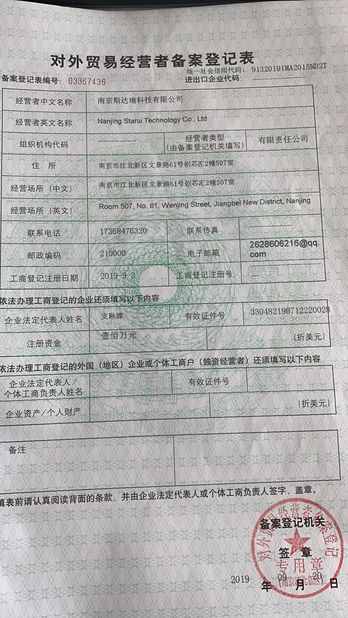 对外贸易经营者备案登记表
统一社会信用代码: 91320191MA2015ND2T
备案登记表编号: 03367436 进出口企业代码:
经营者中文名称 南京斯达瑞科技有限公司
经营者英文名称 Nanjing Starui Technology Co., Ltd
组织机构代码 经营者类型 (由备案登记机关填写) 有限责任公司
住 所 南京市江北新区文景路61号创芯汇2幢507室
经营场所(中文) 南京市江北新区文景路61号创芯汇2幢507室
经营场所(英文) Room 507, No. 61, Wenjing Street, Jiangbei New District, Nanjing
联系电话 17368476320 联系传真
邮政编码 210000 电子邮箱 2628606216@qq.com
工商登记注册日期 2019-9-3 工商登记注册号
依法办理工商登记的企业还须填写以下内容
企业法定代表人姓名 有效证件号 330482198712220028
注册资金 壹佰万元 (折美元)
依法办理工商登记的外国(地区)企业或个体工商户(独资经营者)还须填写以下内容
企业法定代表人/ 个体工商负责人姓名 有效证件号
企业资产/个人财产 (折美元)
备注
填表前请认真阅读背面的条款,并由企业法定代表人或个体工商负责人签字、盖章。
备案登记机关
签 章
对外贸易经营者备案登记
专用章
2019 年 09 月 20 日